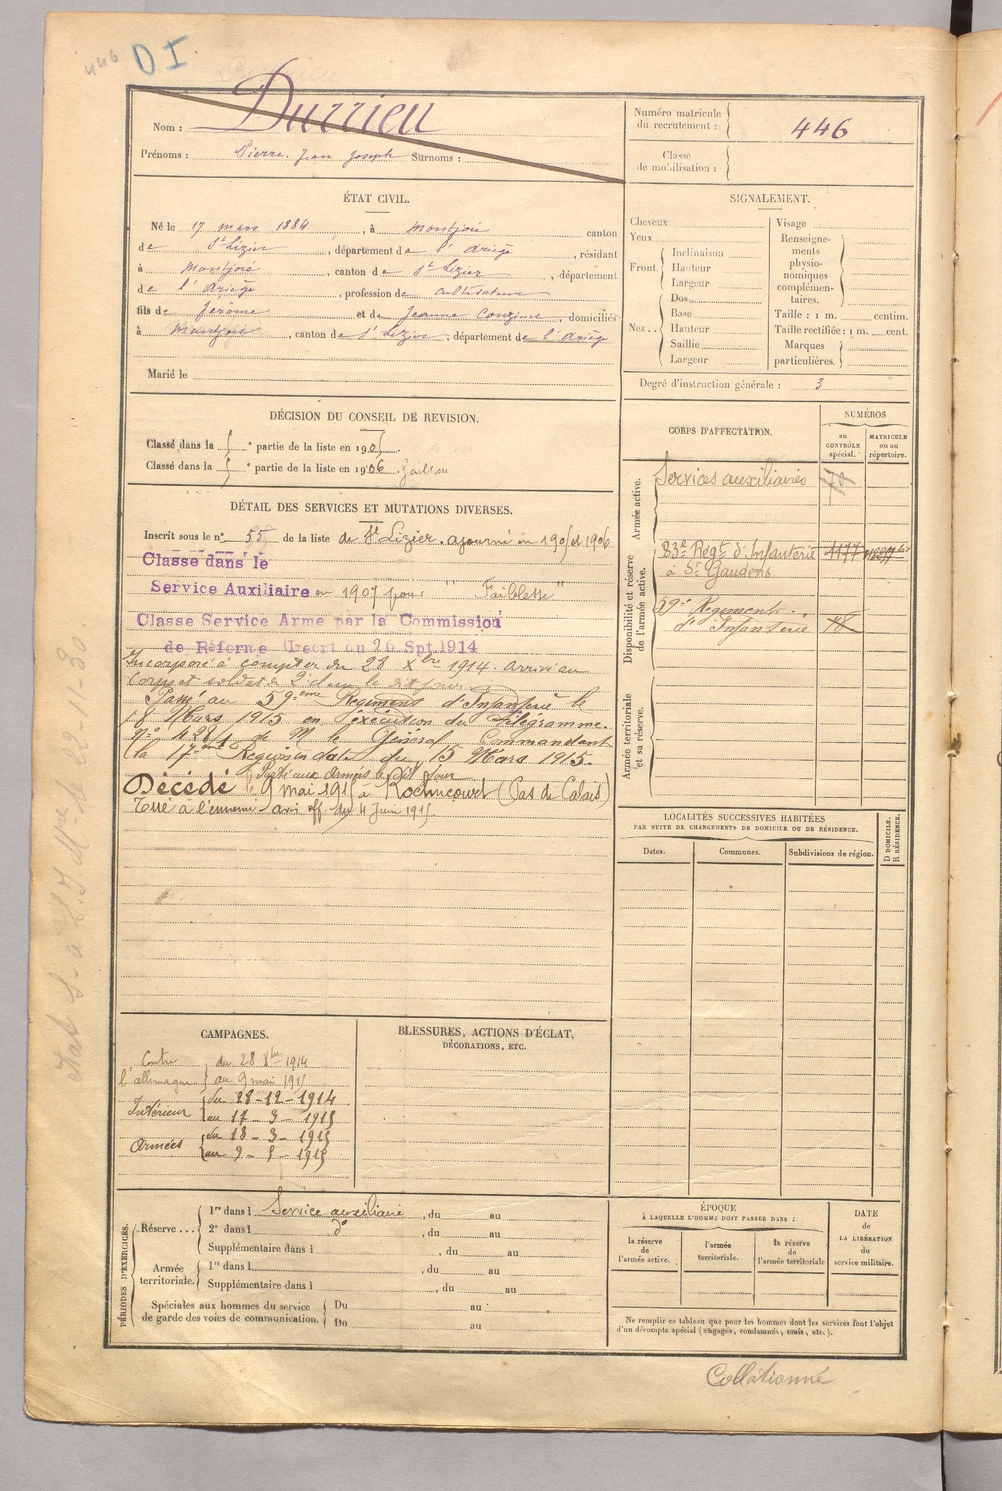 446 DI.
Nom : Durrieu
Prénoms : Pierre. Jean Joseph Surnoms :
Numéro matricule
du recrutement : 446
Classe
de mobilisation :
ÉTAT CIVIL.
Né le 17 mars 1884, à Montjoie canton
de St Lizier, département de l'Ariège, résidant
à Montjoie, canton de St Lizier, département
de l'Ariège, profession de cultivateur
fils de Jérôme et de Jeanne, domiciliés
à Montjoie, canton de St Lizier, département de l'Ariège
Marié le
SIGNALEMENT.
Cheveux
Yeux
Front. Inclinaison
Hauteur
Largeur
Nez.. Dos
Base
Hauteur
Saillie
Largeur
Visage
Renseigne-
ments
physio-
nomiques
complémen-
taires.
Taille : 1 m. centim.
Taille rectifiée : 1 m. cent.
Marques
particulières.
Degré d'instruction générale : 3
DÉCISION DU CONSEIL DE REVISION.
Classé dans la e partie de la liste en 1905.
Classé dans la e partie de la liste en 1906
DÉTAIL DES SERVICES ET MUTATIONS DIVERSES.
Inscrit sous le n° 55 de la liste de St Lizier. ajourné en 1905 et 1906
Classé dans le
Service Auxiliaire en 1907 pour "Faiblesse"
Classé Service Armé par la Commission
de Réforme (Décret du 26 Spt 1914
Incorporé à compter du 28 Xbre 1914. Arrivé au
corps et soldat de 2e cl. le dit jour
Passé au 59ème Régiment d'Infanterie le
18 Mars 1915 en exécution du Télégramme.
N° 428/1 de M le Général Commandant
la 17ème Région en date du 15 Mars 1915.
Parti aux Armées le dit jour
Décédé le 9 mai 1915 à Roclincourt (Pas de Calais)
Tué à l'ennemi avis off du 4 Juin 1915.
CORPS D'AFFECTATION.
NUMÉROS
au
CONTRÔLE
spécial.
MATRICULE
ou au
répertoire.
Armée active.
Services auxiliaires 70
Disponibilité et réserve
de l'armée active.
83e Régt d'Infanterie 1177
à St Gaudens
59e Régiment
d'Infanterie
Armée territoriale
et sa réserve.
LOCALITÉS SUCCESSIVES HABITÉES
PAR SUITE DE CHANGEMENTS DE DOMICILE OU DE RÉSIDENCE.
Dates.
Communes.
Subdivisions de région.
D DOMICILE.
R RÉSIDENCE.
CAMPAGNES.
Contre du 28 Xbre 1914
l'allemagne au 9 mai 1915
Intérieur du 28-12-1914
au 17-3-1915
Armées du 18-3-1915
au 9-5-1915
BLESSURES, ACTIONS D'ÉCLAT,
DÉCORATIONS, ETC.
PÉRIODES D'EXERCICES.
Réserve... 1re dans l Service auxiliaire, du au
2e dans l do, du au
Supplémentaire dans l, du au
Armée
territoriale. 1re dans l, du au
Supplémentaire dans l, du au
Spéciales aux hommes du service
de garde des voies de communication. Du au
Du au
ÉPOQUE
À LAQUELLE L'HOMME DOIT PASSER DANS :
la réserve
de
l'armée active.
l'armée
territoriale.
la réserve
de
l'armée territoriale
DATE
de
LA LIBÉRATION
du
service militaire.
Ne remplir ce tableau que pour les hommes dont les services font l'objet
d'un décompte spécial (engagés, condamnés, omis, etc.).
Collationné